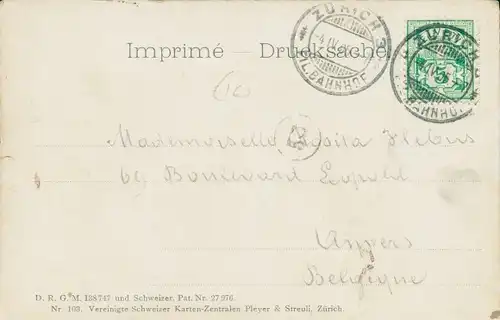 ZÜRICH
FIL. BAHNHOF
Imprimé — Drucksache
5
60
Mademoiselle
69 Boulevard Léopold
Anvers
Belgique
D. R. G. M. 138747 und Schweizer. Pat. Nr. 27976.
Nr 103. Vereinigte Schweizer Karten-Zentralen Pleyer & Streuli, Zürich.